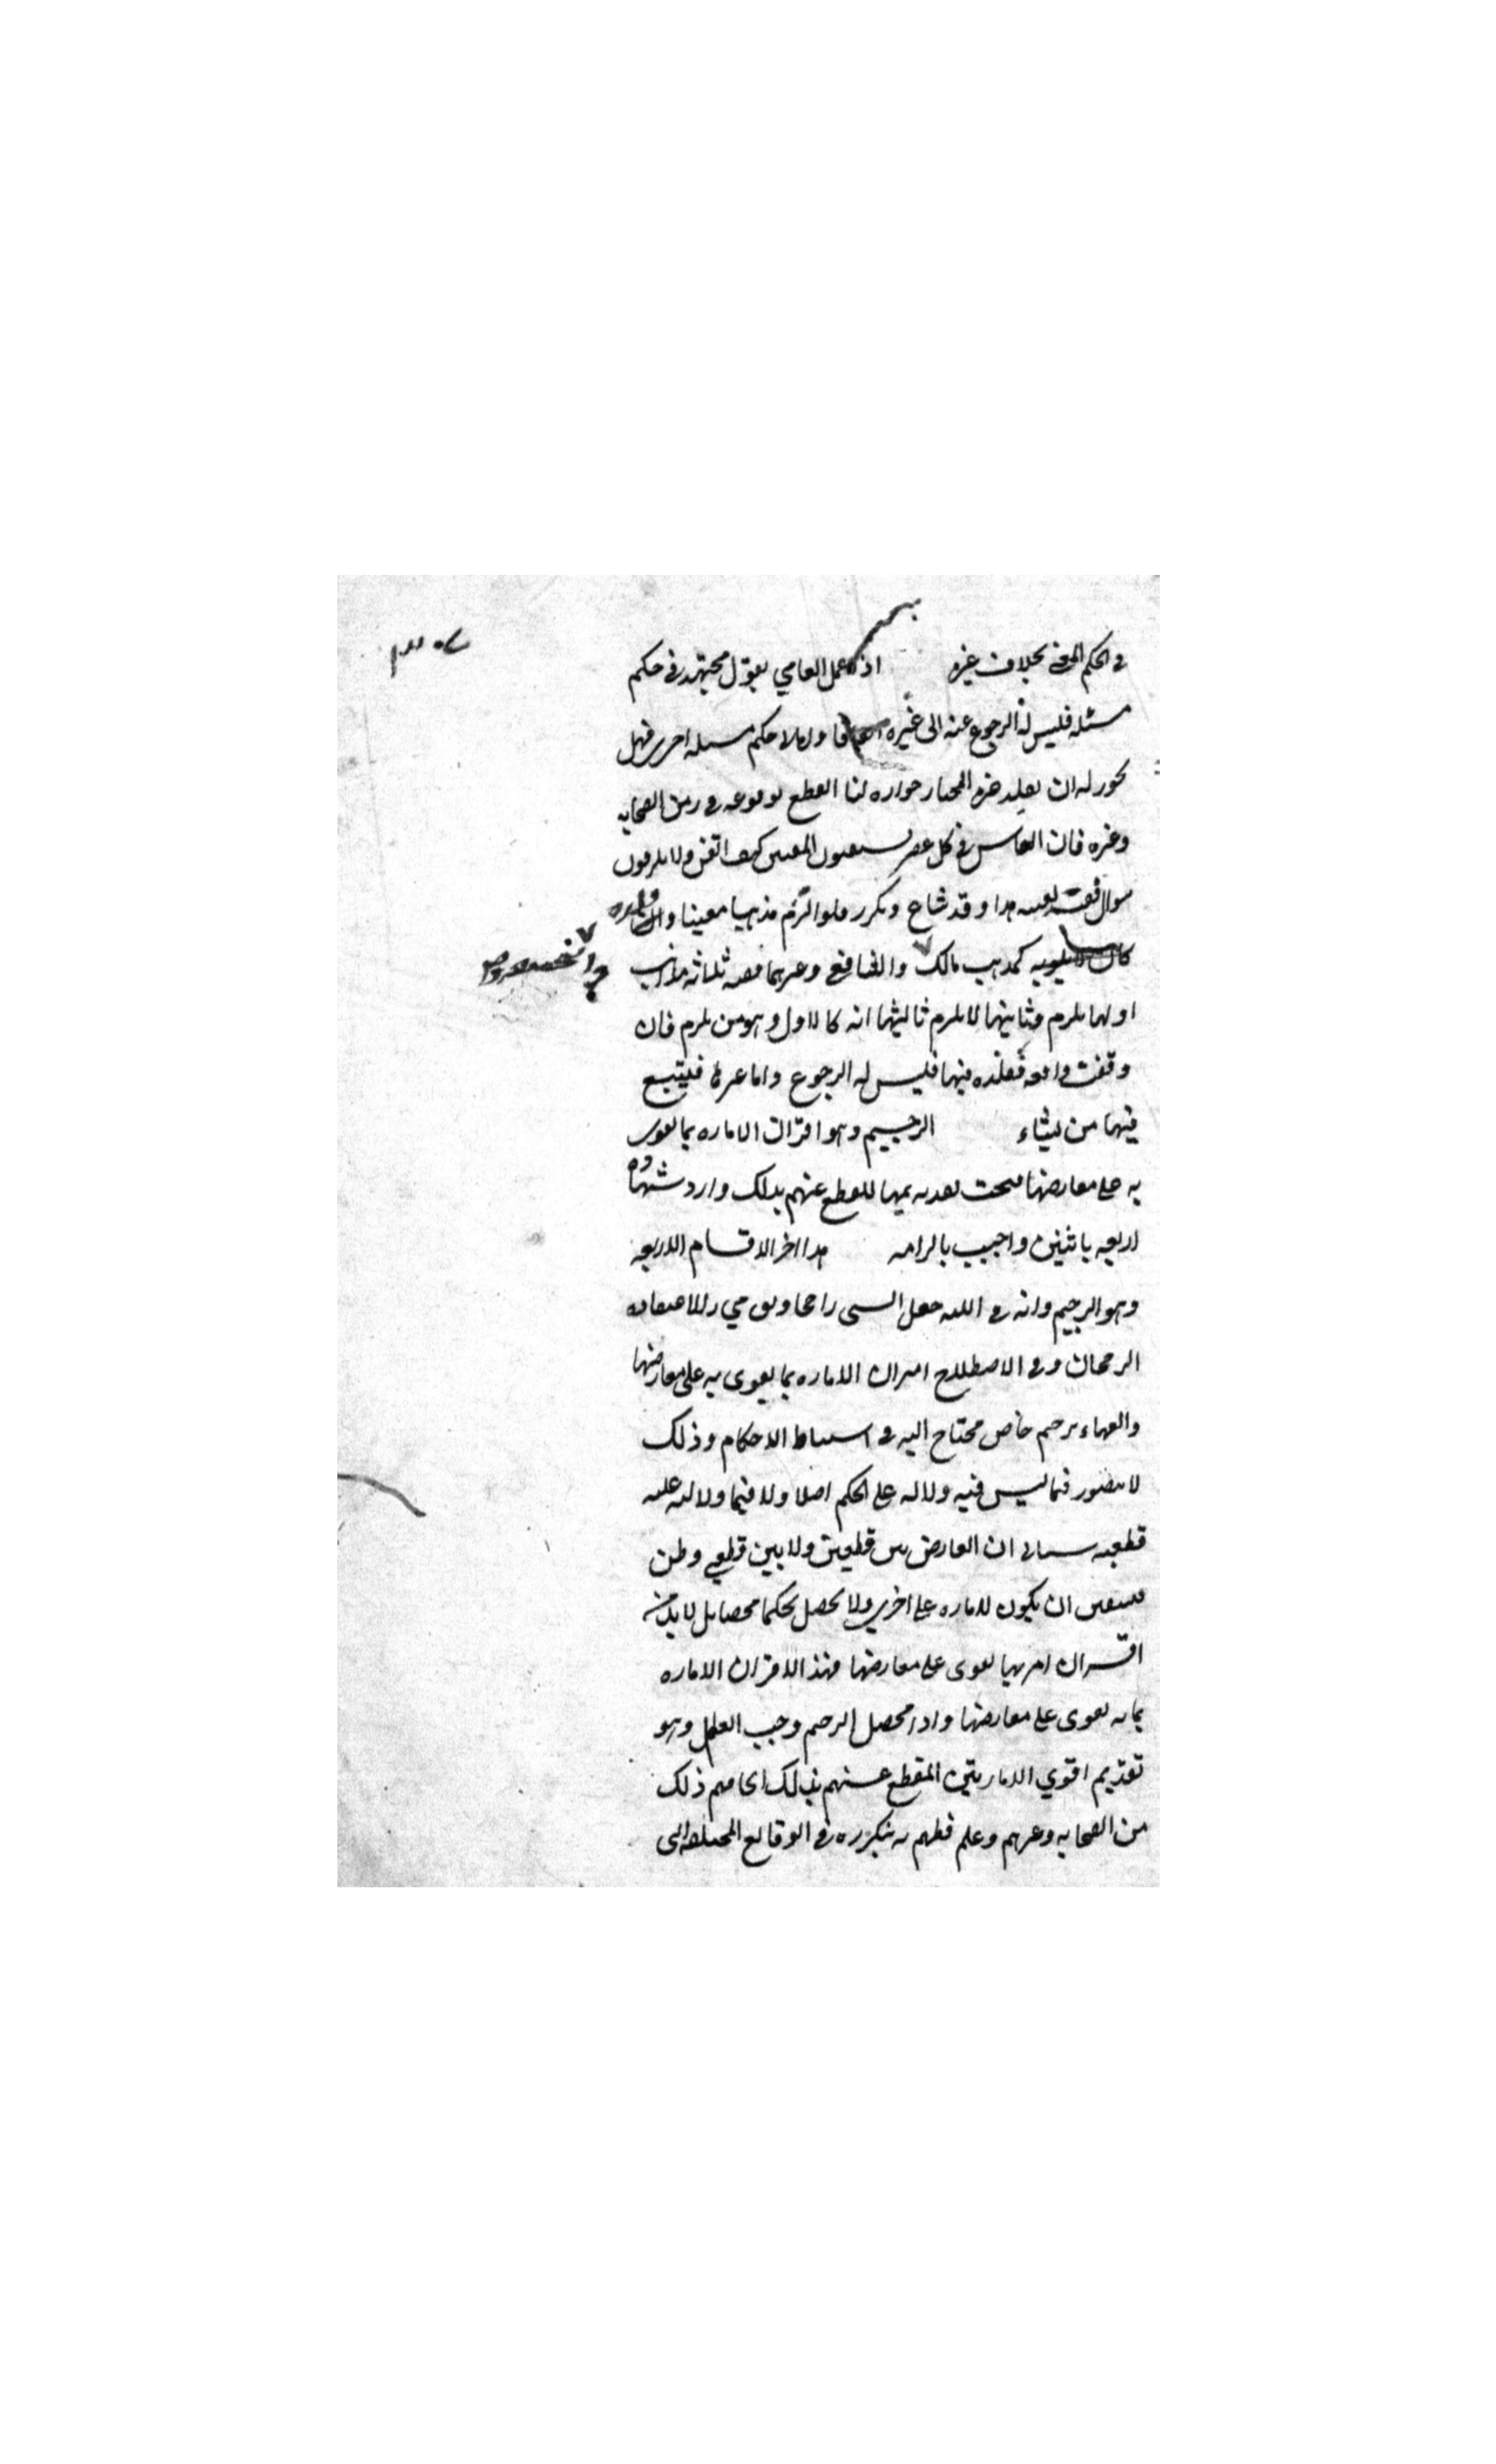 في الحكم الجزئي بخلاف غيره اذا عمل العامي بقول مجتهد في حكم
مسئله فليس له الرجوع عنه الى غيره اتفاقا واما لا حكم مسئله اخرى فهل
يجوز له ان يقلد غيره المختار جوازه لنا القطع بوقوعه في زمن الصحابه
وغيره فان الناس في كل عصر يستفتون المفتين كيف اتفق ولا يلتزمون
سوال مفت بعينه هذا وقد شاع وتكرر فلو التزم مذهبا معينا وان
كان كمذهب مالك والشافعي وغيرهما ففيه ثلاثه مذاهب
اولها يلزم وثانيها لا يلزم ثالثها انه كالاول وهو من لم يلتزم فان
وقعت واقعه فقلده فيها فليس له الرجوع واما غيرها فيتبع
فيها من يشاء الترجيح وهو اقتران الاماره بما تقوى
به على معارضها فيجب تقديمها للقطع عنهم بذلك واورد شهاده
اربعه باثنين واجيب بالتزامه هذا اخر الاقسام الاربعه
وهو الترجيح وانه في اللغه جعل الشى راجحا ويقال مجازا لاعتقاده
الرجحان وفي الاصطلاح اقتران الاماره بما يقوى به على معارضها
والفقهاء ترجيح خاص محتاج اليه في استنباط الاحكام وذلك
لا يتصور فيما ليس فيه دلاله على الحكم اصلا ولا فيما دلالته عليه
قطعيه سياتى ان التعارض بين قطعيين ولا بين قطعي وظن
فتعين ان يكون لاماره على اخرى ولا يحصل تحكما محضا بل لا بد من
اقتران امر بها تقوى على معارضها فهذا الاقتران الاماره
بما به تقوى على معارضها واذا محصل الترجيح وجب العمل وهو
تقديم اقوي الامارتين المقطع عنهم بذلك اى فهم ذلك
من الصحابه وغيرهم وعلم قطعهم به بتكرره في الوقائع المختلفه التى